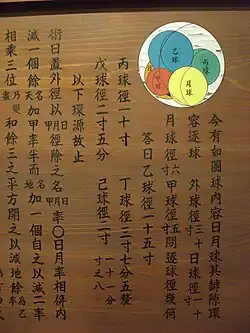 乙球
丙球
甲球
月球
今有如圖球内容日月球其罅隙環
容逐球 外球徑三十寸日球徑一十寸
月球徑六寸甲球徑五寸問逐球徑幾何
答曰乙球徑一十五寸
丙球徑一十寸 丁球徑三寸七分五整
戊球徑二寸五分 己球徑二寸一十一分寸之八
以下環源故止
術曰置外徑以日月甲徑除之名日月甲率〇日月率相併内
減一個餘名天加甲率半而名地加一個自之以減二率
和餘三之平方開之以減地餘